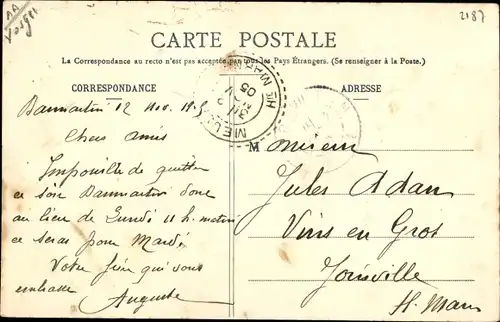 AA
Vosges
2187
CARTE POSTALE
La Correspondance au recto n'est pas acceptée par tous les Pays Étrangers. (Se renseigner à la Poste.)
CORRESPONDANCE
ADRESSE
Dammartin 12 Nov. 1905
Chers Amis
Impossible de quitter
ce soir Dammartin donc
au lieu de Lundi 11 h. matin
ce sera pour Mardi.
Votre frère qui vous
embrasse
Auguste
Monsieur
Jules Adam
Vins en Gros
Joinville
Hte Marne